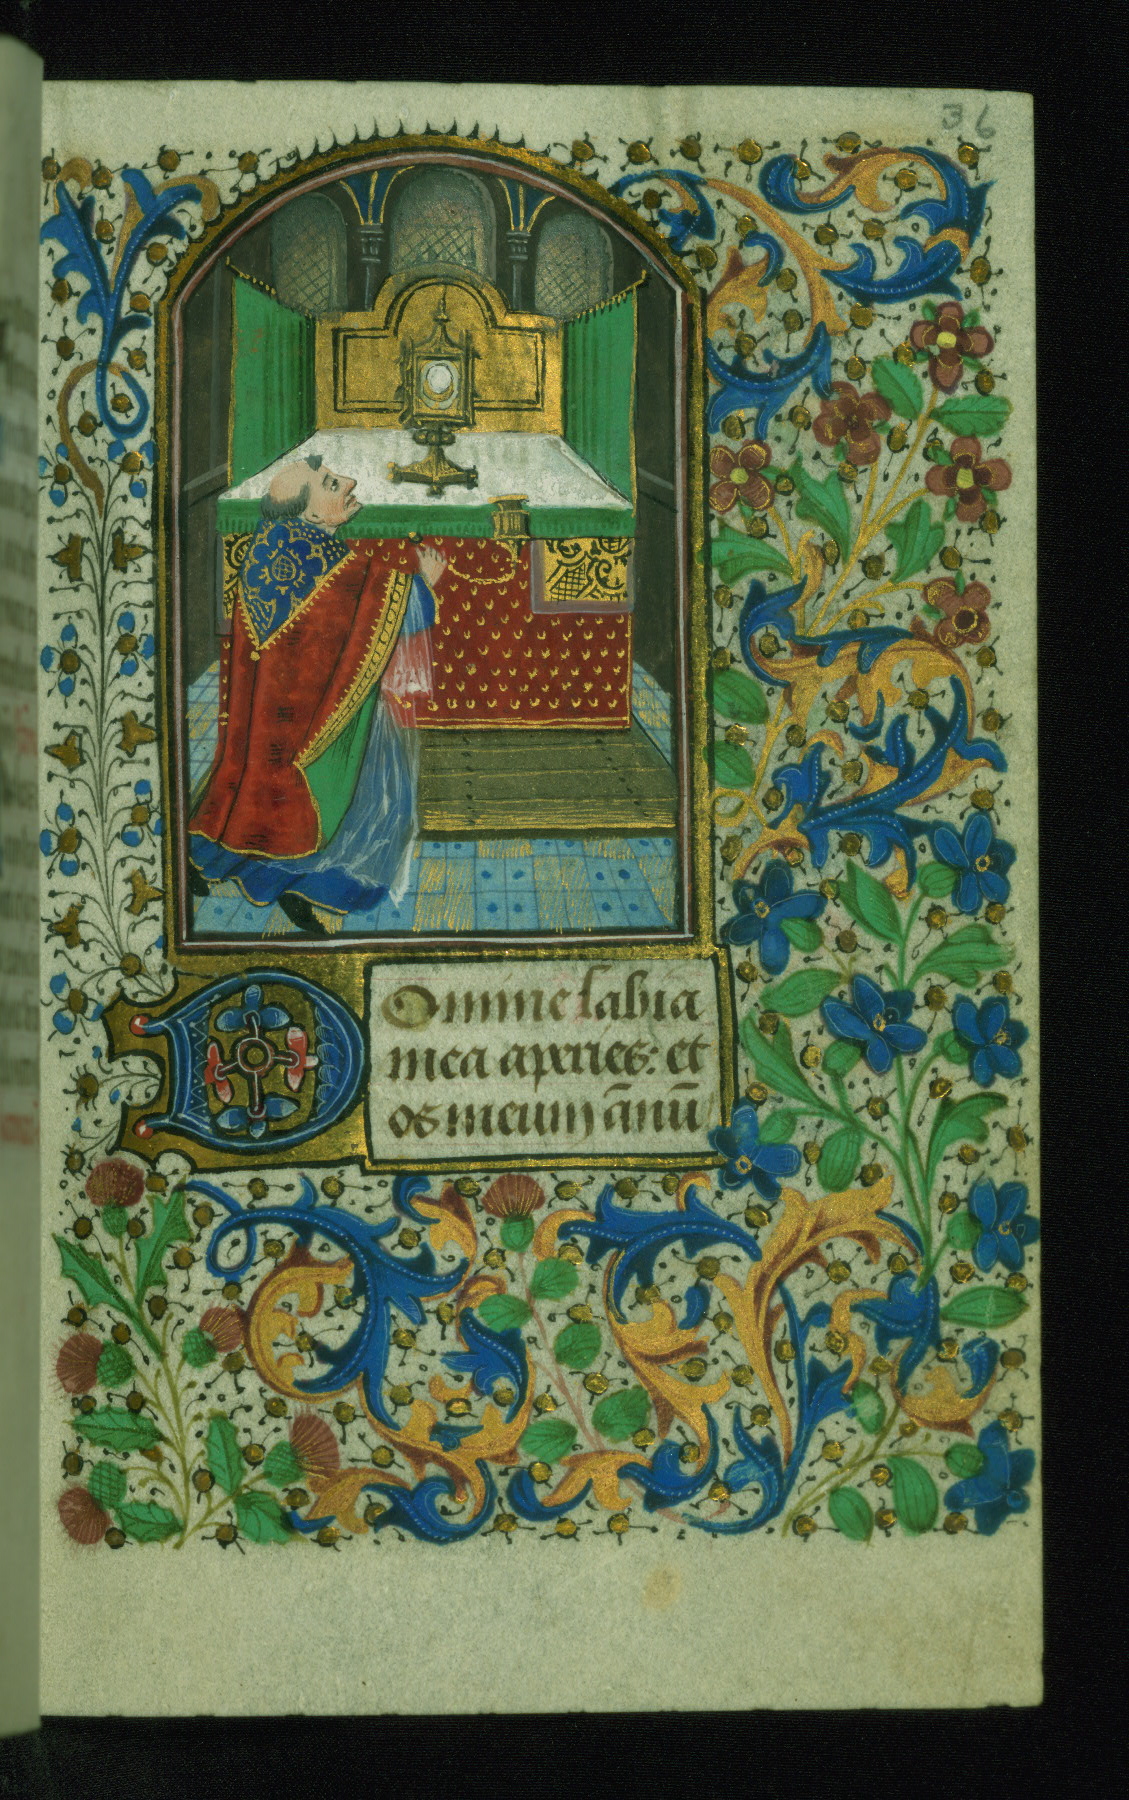 36
Domine labia
mea aperies: et
os meum ānū